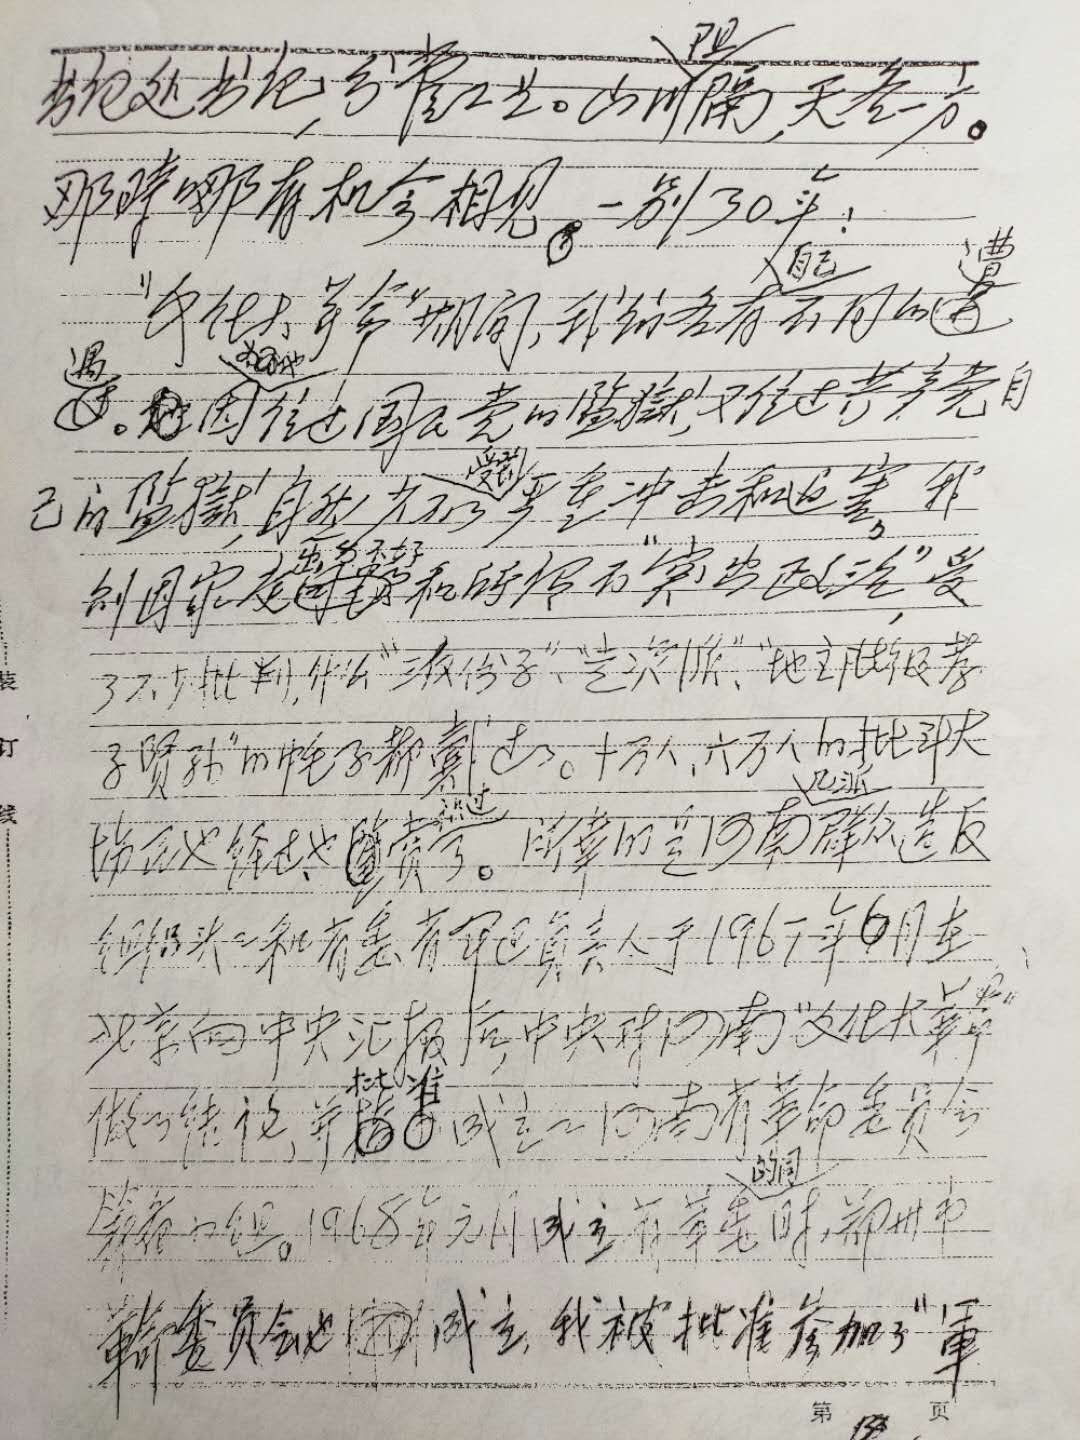 书记处书记，分管工业。山川阻隔，天各一方。
那時哪有机会相见。一别30年！
"文化大革命"期间，我们各有自己不同的遭
遇。她因为曾经住过国民党的監獄，又住过共产党自
己的監獄，自然少不了受到严重冲击和迫害。我
则因家庭出身不好和所谓不"突出政治"，受
了不少批判，什么"三反份子"、"走资派"、"地主阶级孝
子賢孙"的帽子都戴过了。十万人、六万人的批斗大
場面也经过、也見识过了。所幸的是河南几派群众造反
组织头头和省委省军区負责人于1967年6月在
北京向中央汇报后，中央对河南"文化大革命"
做了结论，并批准成立了河南省革命委員会
籌备小组。1968年元月成立省革委的同时，郑州市
革命委員会也成立，我被批准参加了"軍
第 页
装
订
线